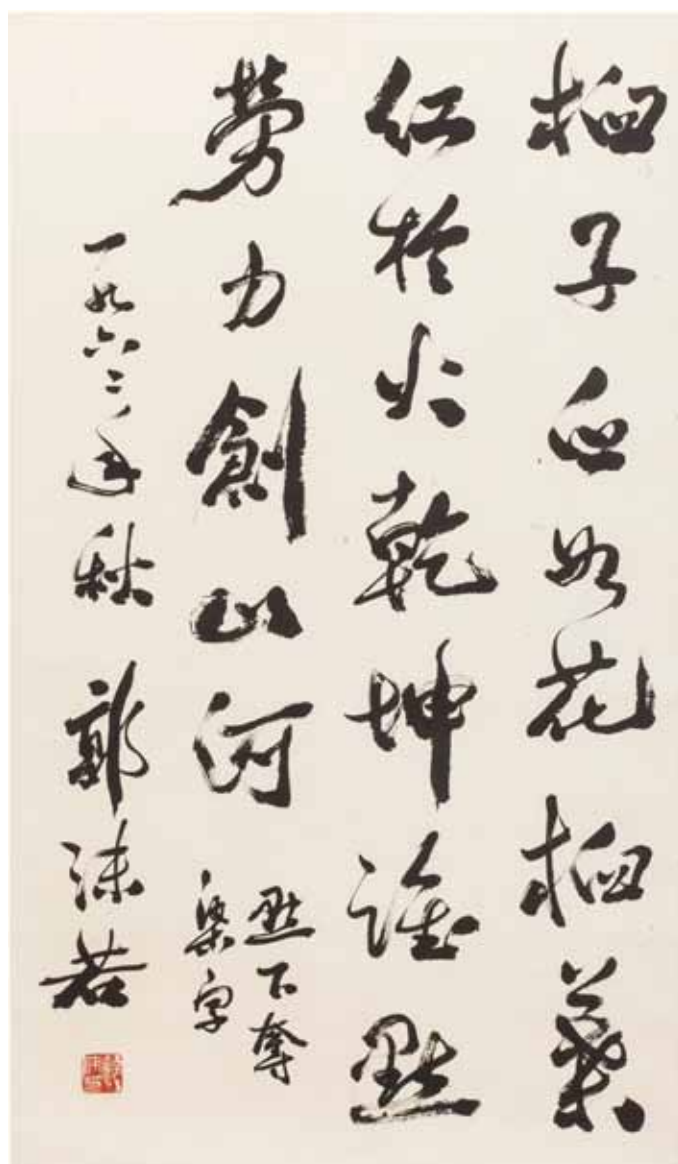 桕子白如花桕葉
紅於火乾坤誰點
勞力創山河
點下奪
染字
一九六二年秋 郭沫若